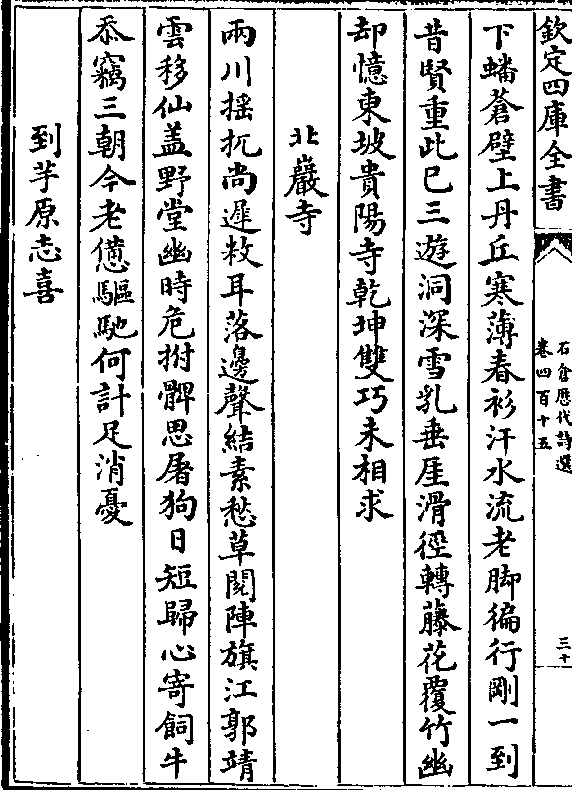 欽定四庫全書
石倉歷代詩選
卷四百十五
三十
下蟠蒼壁上丹丘寒薄春衫汗水流老脚徧行剛一到
昔賢重此已三遊洞深雪乳垂厓滑徑轉藤花覆竹幽
却憶東坡貴陽寺乾坤雙巧未相求
北巖寺
兩川揺扤尚遲敉耳落邊聲結素愁草閱陣旗江郭靖
雲移仙盖野堂幽時危拊髀思屠狗日短歸心寄飼牛
忝竊三朝今老憊驅馳何計足消憂
到芋原志喜